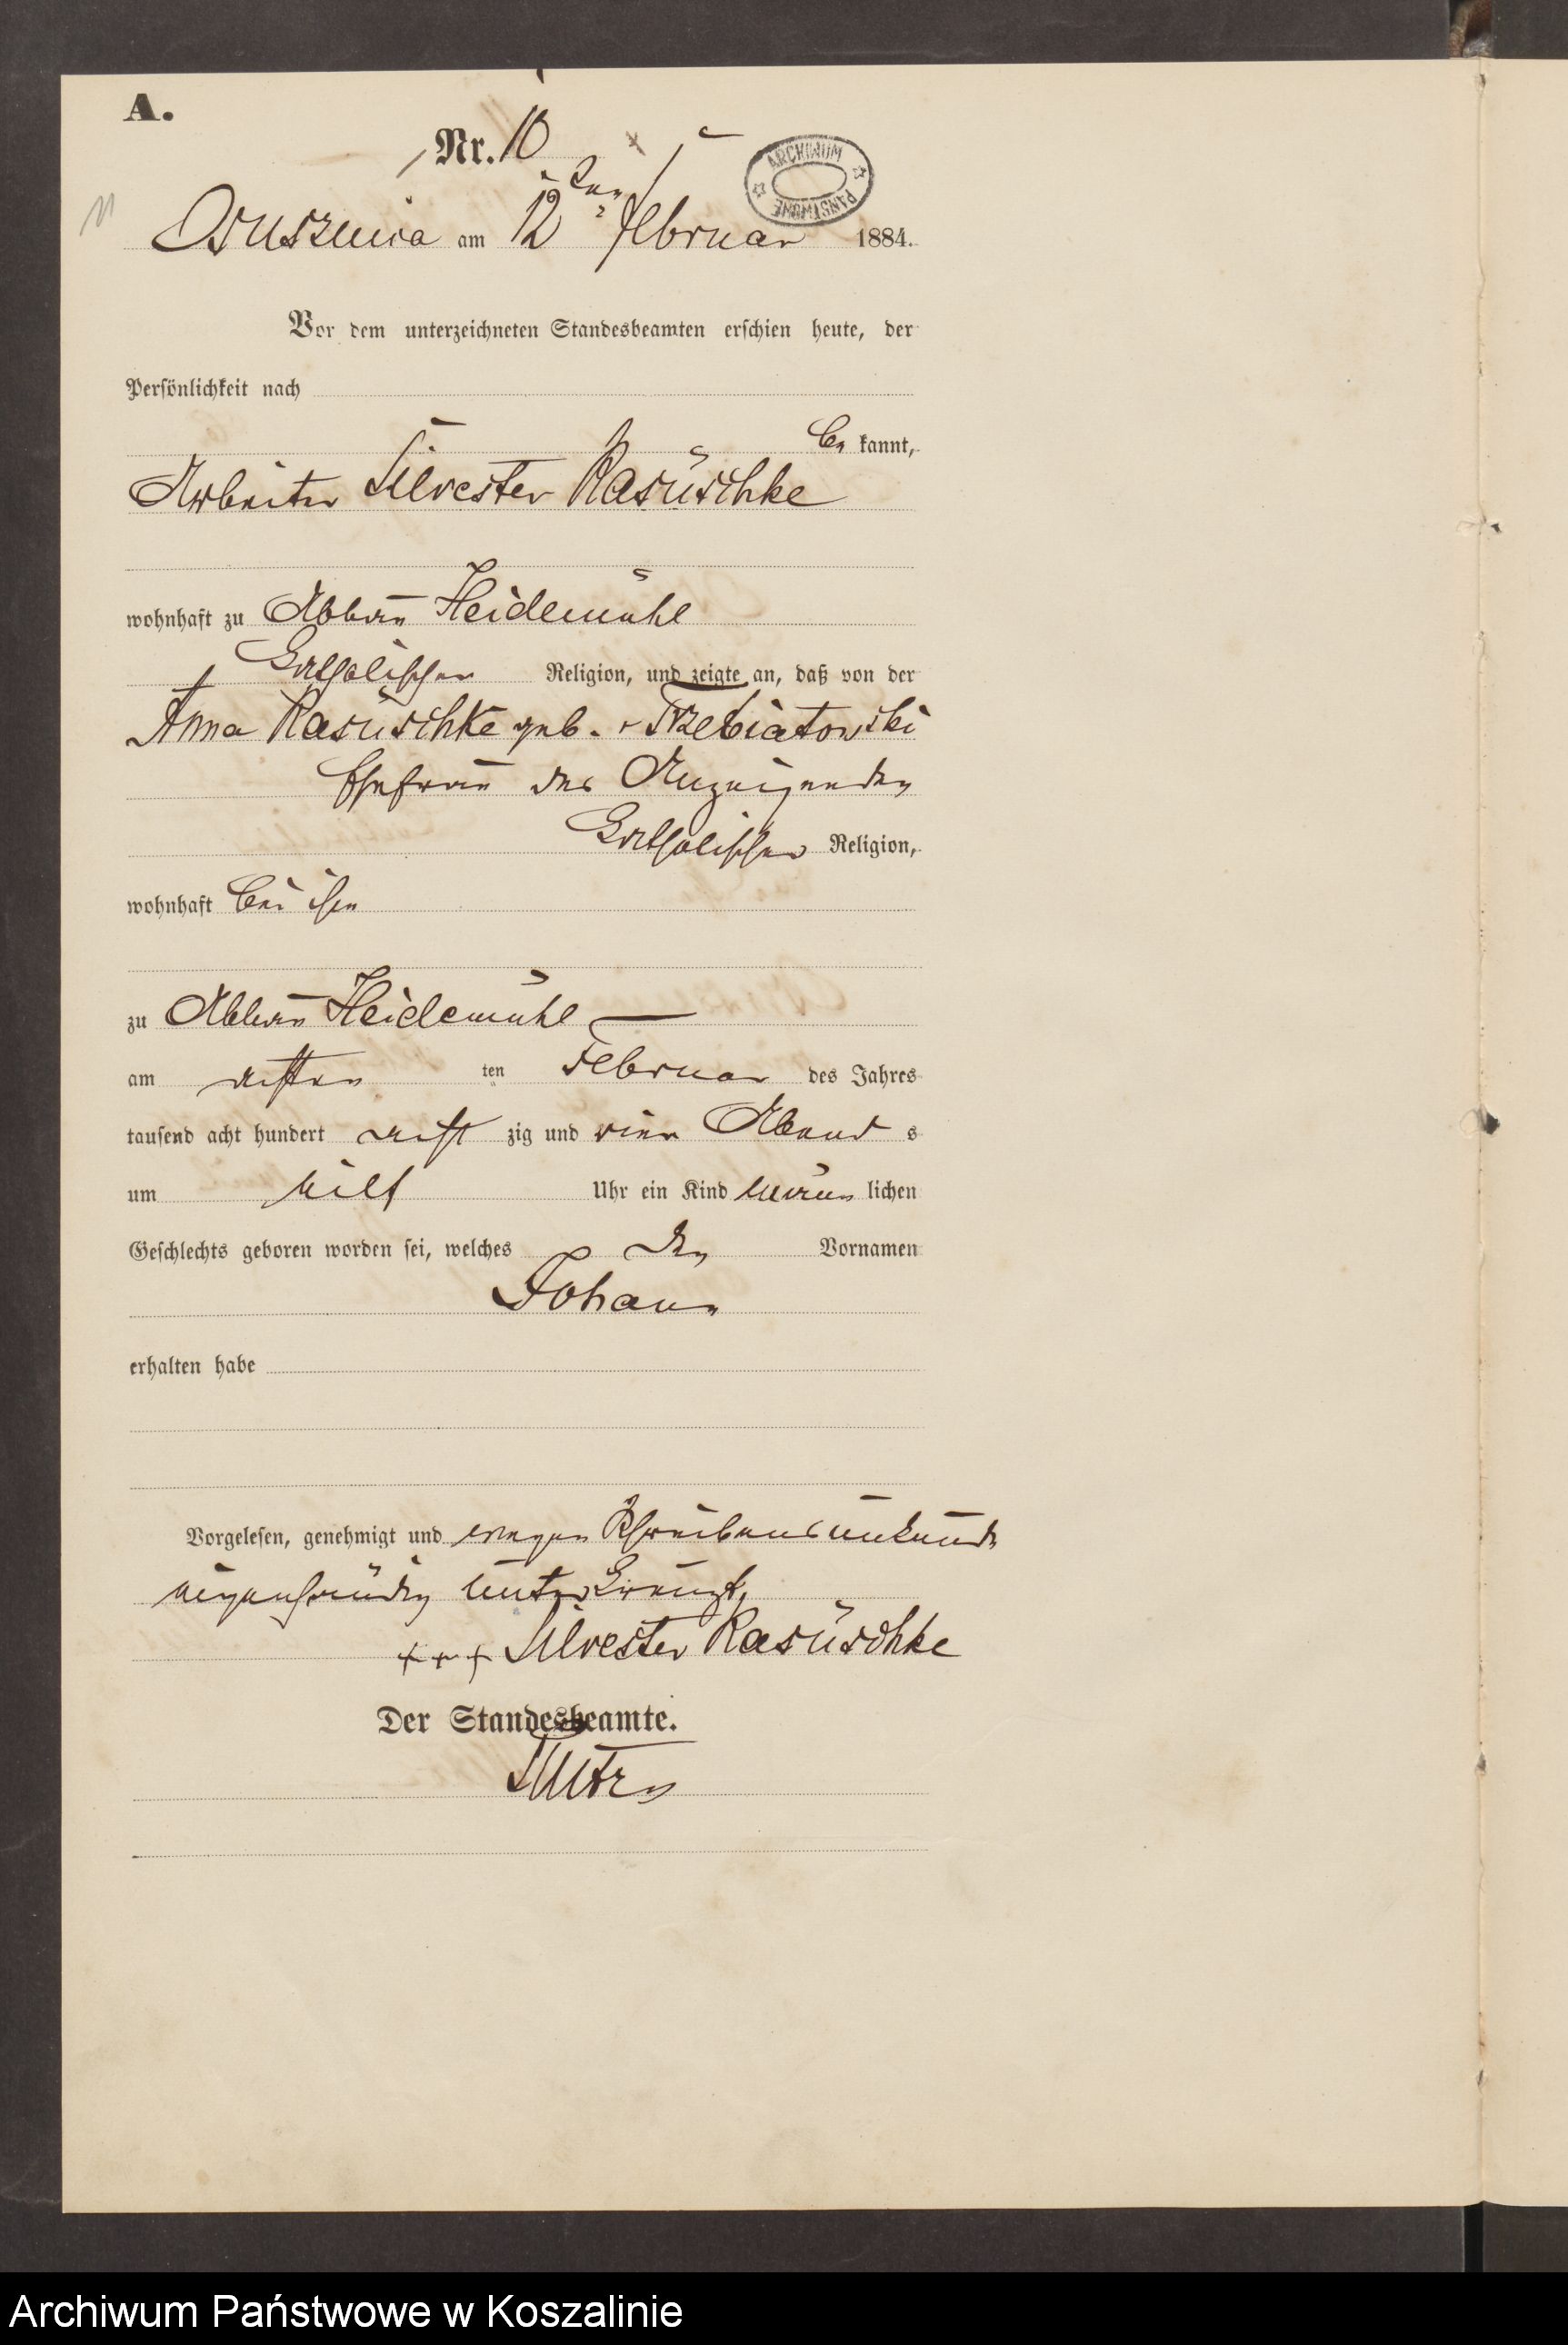 A.
Nr. 10
ARCHIWUM PAŃSTWOWE
Osuszniza am 12ten Februar 1884.
Vor dem unterzeichneten Standesbeamten erschien heute, der
Persönlichkeit nach
be kannt,
Arbeiter Silvester Rasüschke
wohnhaft zu Abbau Heidemühl
katholischer Religion, und zeigte an, daß von der
Anna Rasüschke geb. v Trzebiatowski
Ehefrau des Anzeigenden
katholischer Religion,
wohnhaft bei ihm
zu Abbau Heidemühl
am achten ten Februar des Jahres
tausend acht hundert acht zig und vier Abend s
um eilf Uhr ein Kind männ lichen
Geschlechts geboren worden sei, welches den Vornamen
Johann
erhalten habe
Vorgelesen, genehmigt und wegen Schreibensunkunde
eigenhändig unterkreuzt,
+++ Silvester Rasüschke
Der Standesbeamte.
Archiwum Państwowe w Koszalinie